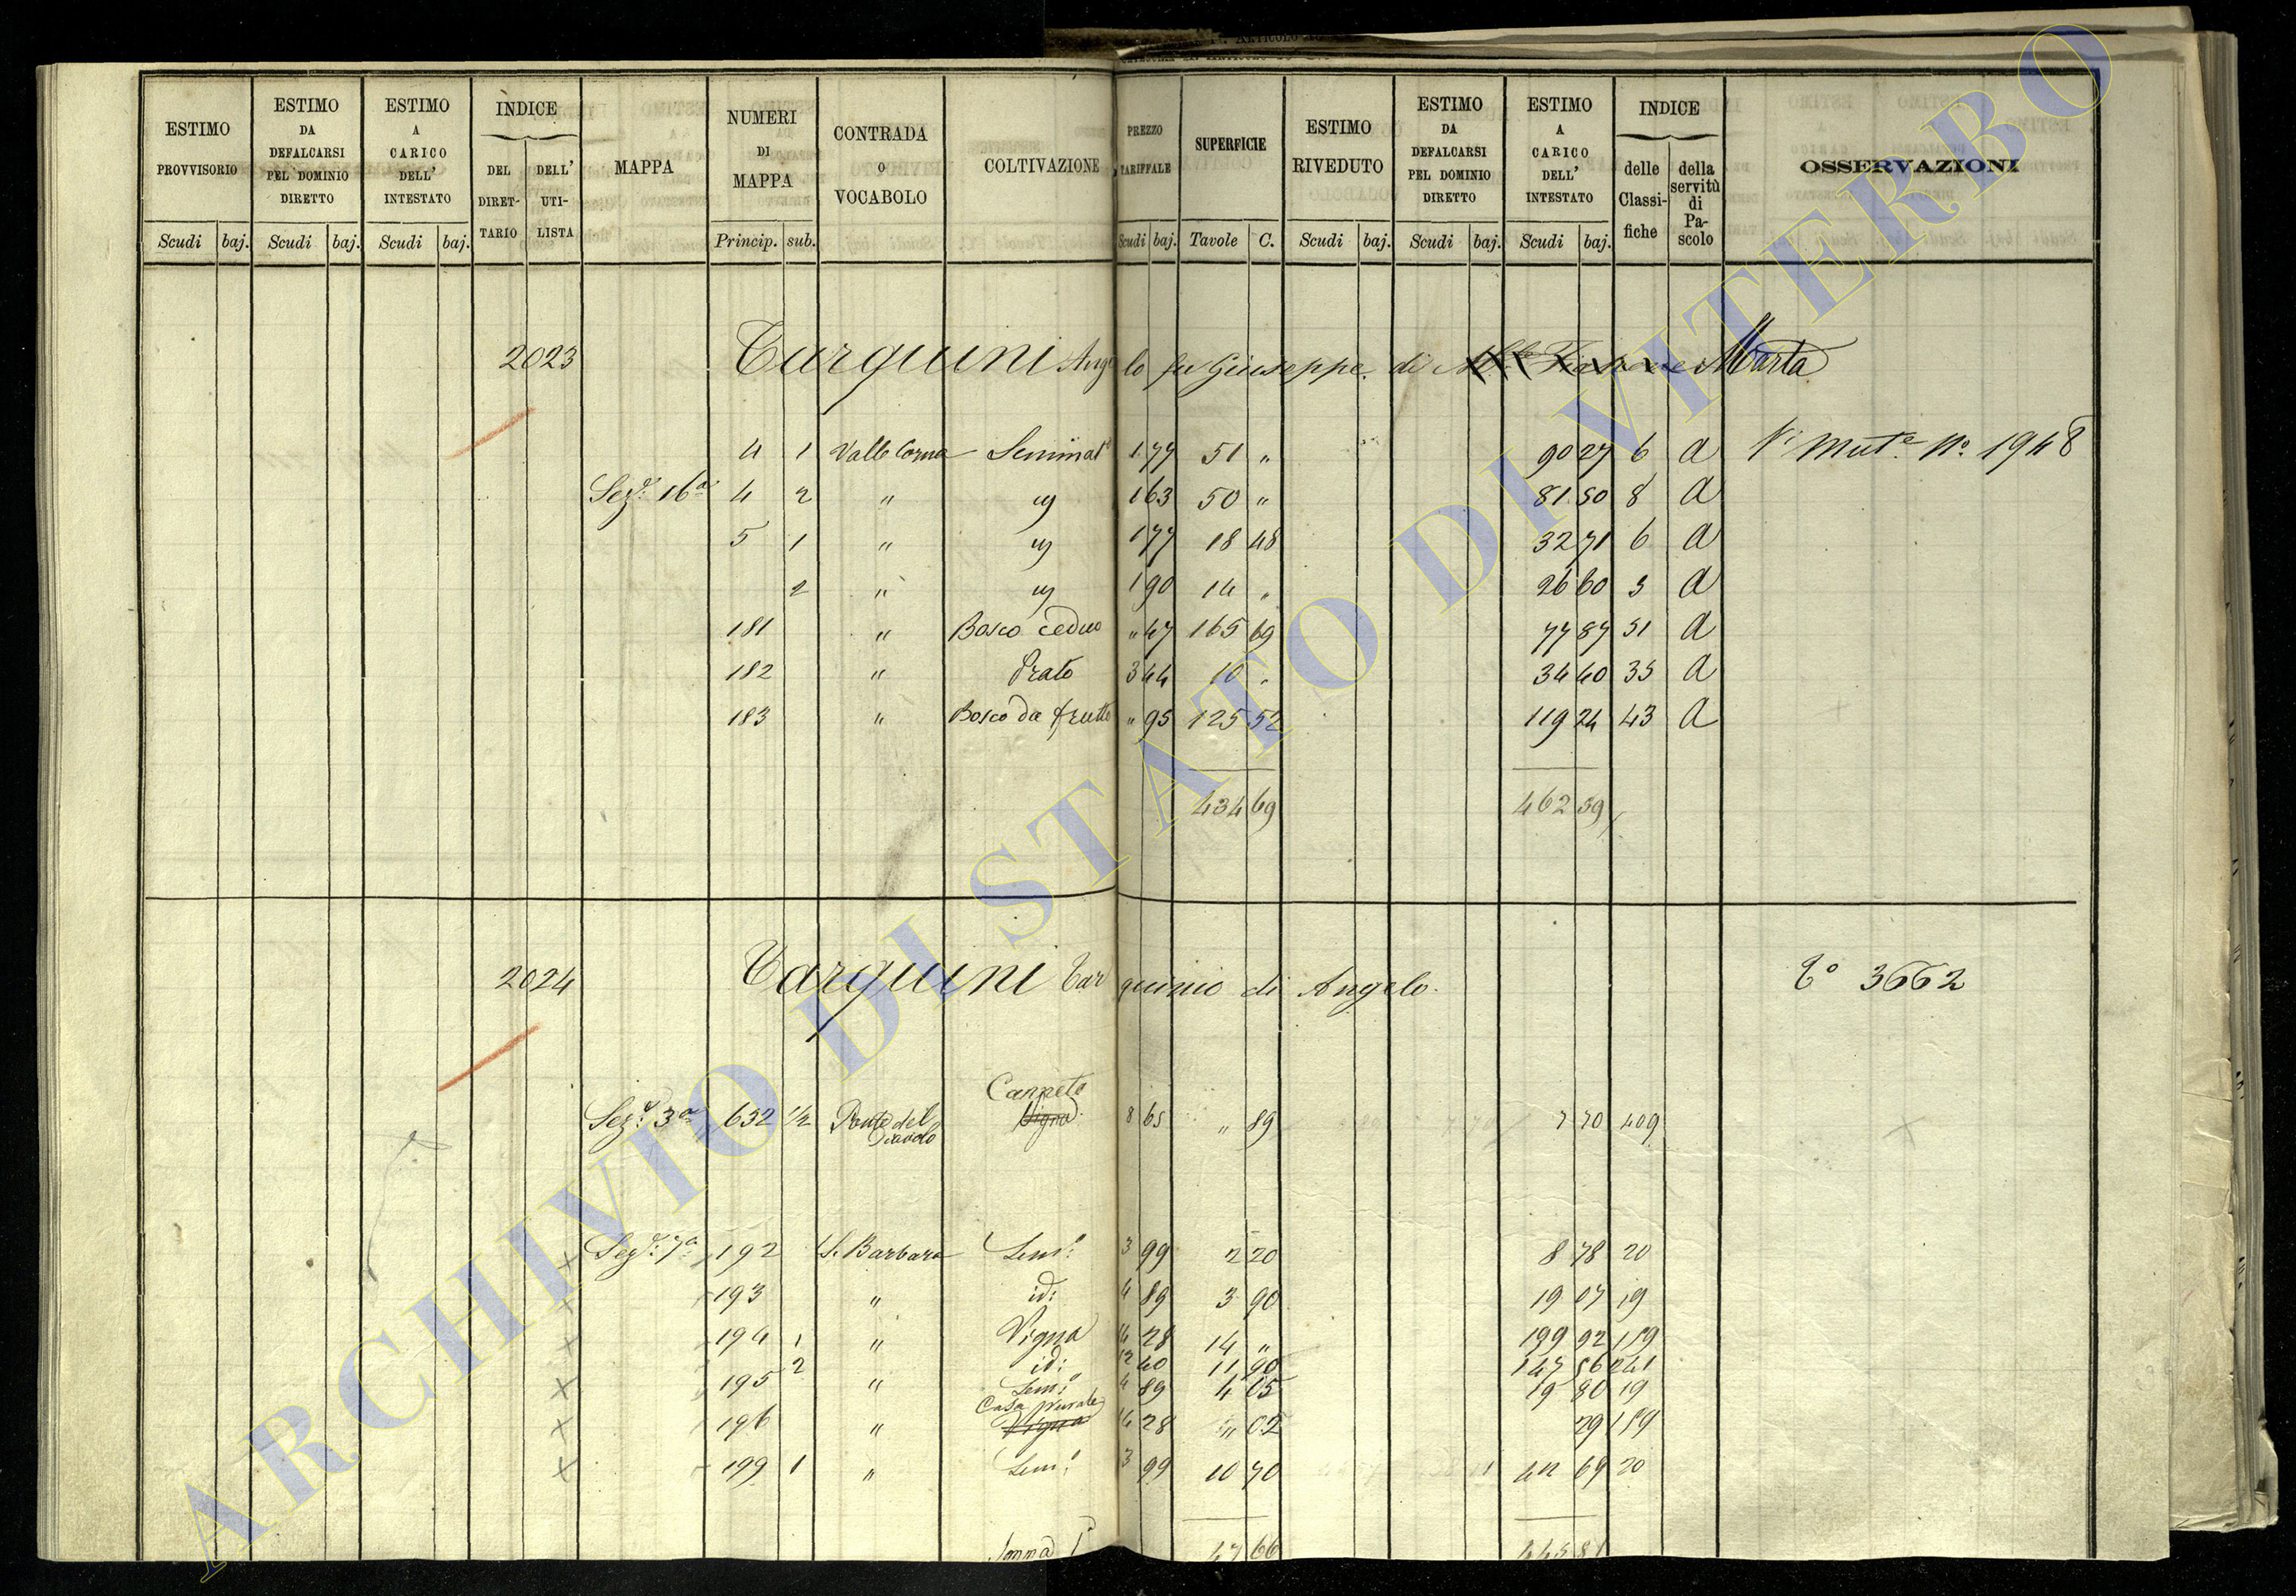 ESTIMO PROVVISORIO | ESTIMO DA DEFALCARSI PEL DOMINIO DIRETTO | ESTIMO A CARICO DELL' INTESTATO | INDICE DEL DIRETTARIO | DELL' UTILISTA | MAPPA | NUMERI DI MAPPA | CONTRADA O VOCABOLO | COLTIVAZIONE | PREZZO TARIFFALE | SUPERFICIE | ESTIMO RIVEDUTO | ESTIMO DA DEFALCARSI PEL DOMINIO DIRETTO | ESTIMO A CARICO DELL' INTESTATO | INDICE delle Classifiche | della servitù di Pascolo | OSSERVAZIONI
Scudi baj. Scudi baj. Scudi baj. Princip. sub. Scudi baj. Tavole C. Scudi baj. Scudi baj. Scudi baj.
2023 Tarquini Angelo fu Giuseppe di Marta
4 1 Valle Cornea Seminat° 1 77 51 " 90 27 6 a Vi Mut.e N° 1948
Sez.e 16a 4 2 " " 1 63 50 " 81 50 8 a
5 1 " " 1 77 18 48 32 71 6 a
2 " " 1 90 14 " 26 60 5 a
181 " Bosco ceduo " 47 165 69 77 87 51 a
182 " Prato 3 44 10 " 34 40 35 a
183 " Bosco da frutto " 95 125 52 119 24 43 a
434 69 462 59
2024 Tarquini Tarquinio di Angelo T° 3662
Canneto
Sez.e 3a 632 1/2 Ponte del Diavolo Vigna 8 65 " 89 7 70 409
Sez.e 7a 192 S. Barbara Sem.o 3 99 2 20 8 78 20
193 " id: 4 89 3 90 19 07 19
194 1 " Vigna 14 28 14 " 199 92 159
2 id: 12 40 11 90 147 56 241
195 " Sem.o 4 89 4 05 19 80 19
Casa rurale
196 " Vigna 14 28 " 02 29 159
199 1 " Sem.o 3 99 10 70 42 69 20
Somma 47 66 445 81
ARCHIVIO DI STATO DI VITERBO